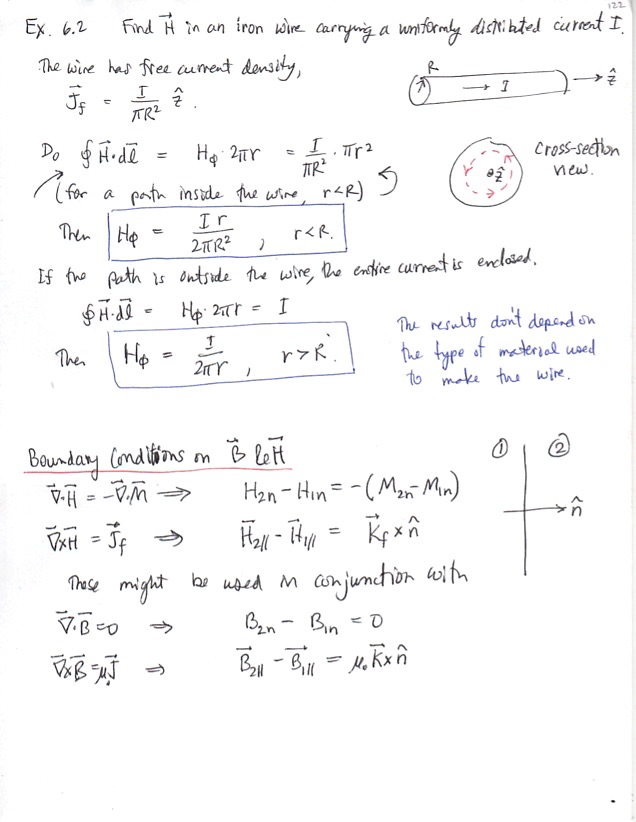 122
Ex. 6.2 Find H⃗ in an iron wire carrying a uniformly distributed current I.
The wire has free current density,
J⃗f = I/πR² ẑ.
R
→ I
→ ẑ
Do ∮H⃗·dl⃗ = Hφ·2πr = I/πR² · πr²
(for a path inside the wire, r<R)
cross-section
new.
ẑ
Then Hφ = Ir/2πR² , r<R.
If the path is outside the wire, the entire current is enclosed.
∮H⃗·dl⃗ = Hφ·2πr = I
Then Hφ = I/2πr , r>R.
The results don't depend on
the type of material used
to make the wire.
Boundary Conditions on B⃗ & H⃗
① ②
n̂
∇⃗·H⃗ = -∇⃗·M⃗ ⟹ H2n - H1n = -(M2n - M1n)
∇⃗×H⃗ = J⃗f ⇒ H⃗2// - H⃗1// = K⃗f × n̂
These might be used in conjunction with
∇⃗·B⃗ = 0 ⇒ B2n - B1n = 0
∇⃗×B⃗ = μ₀J⃗ ⇒ B⃗2// - B⃗1// = μ₀ K⃗ × n̂